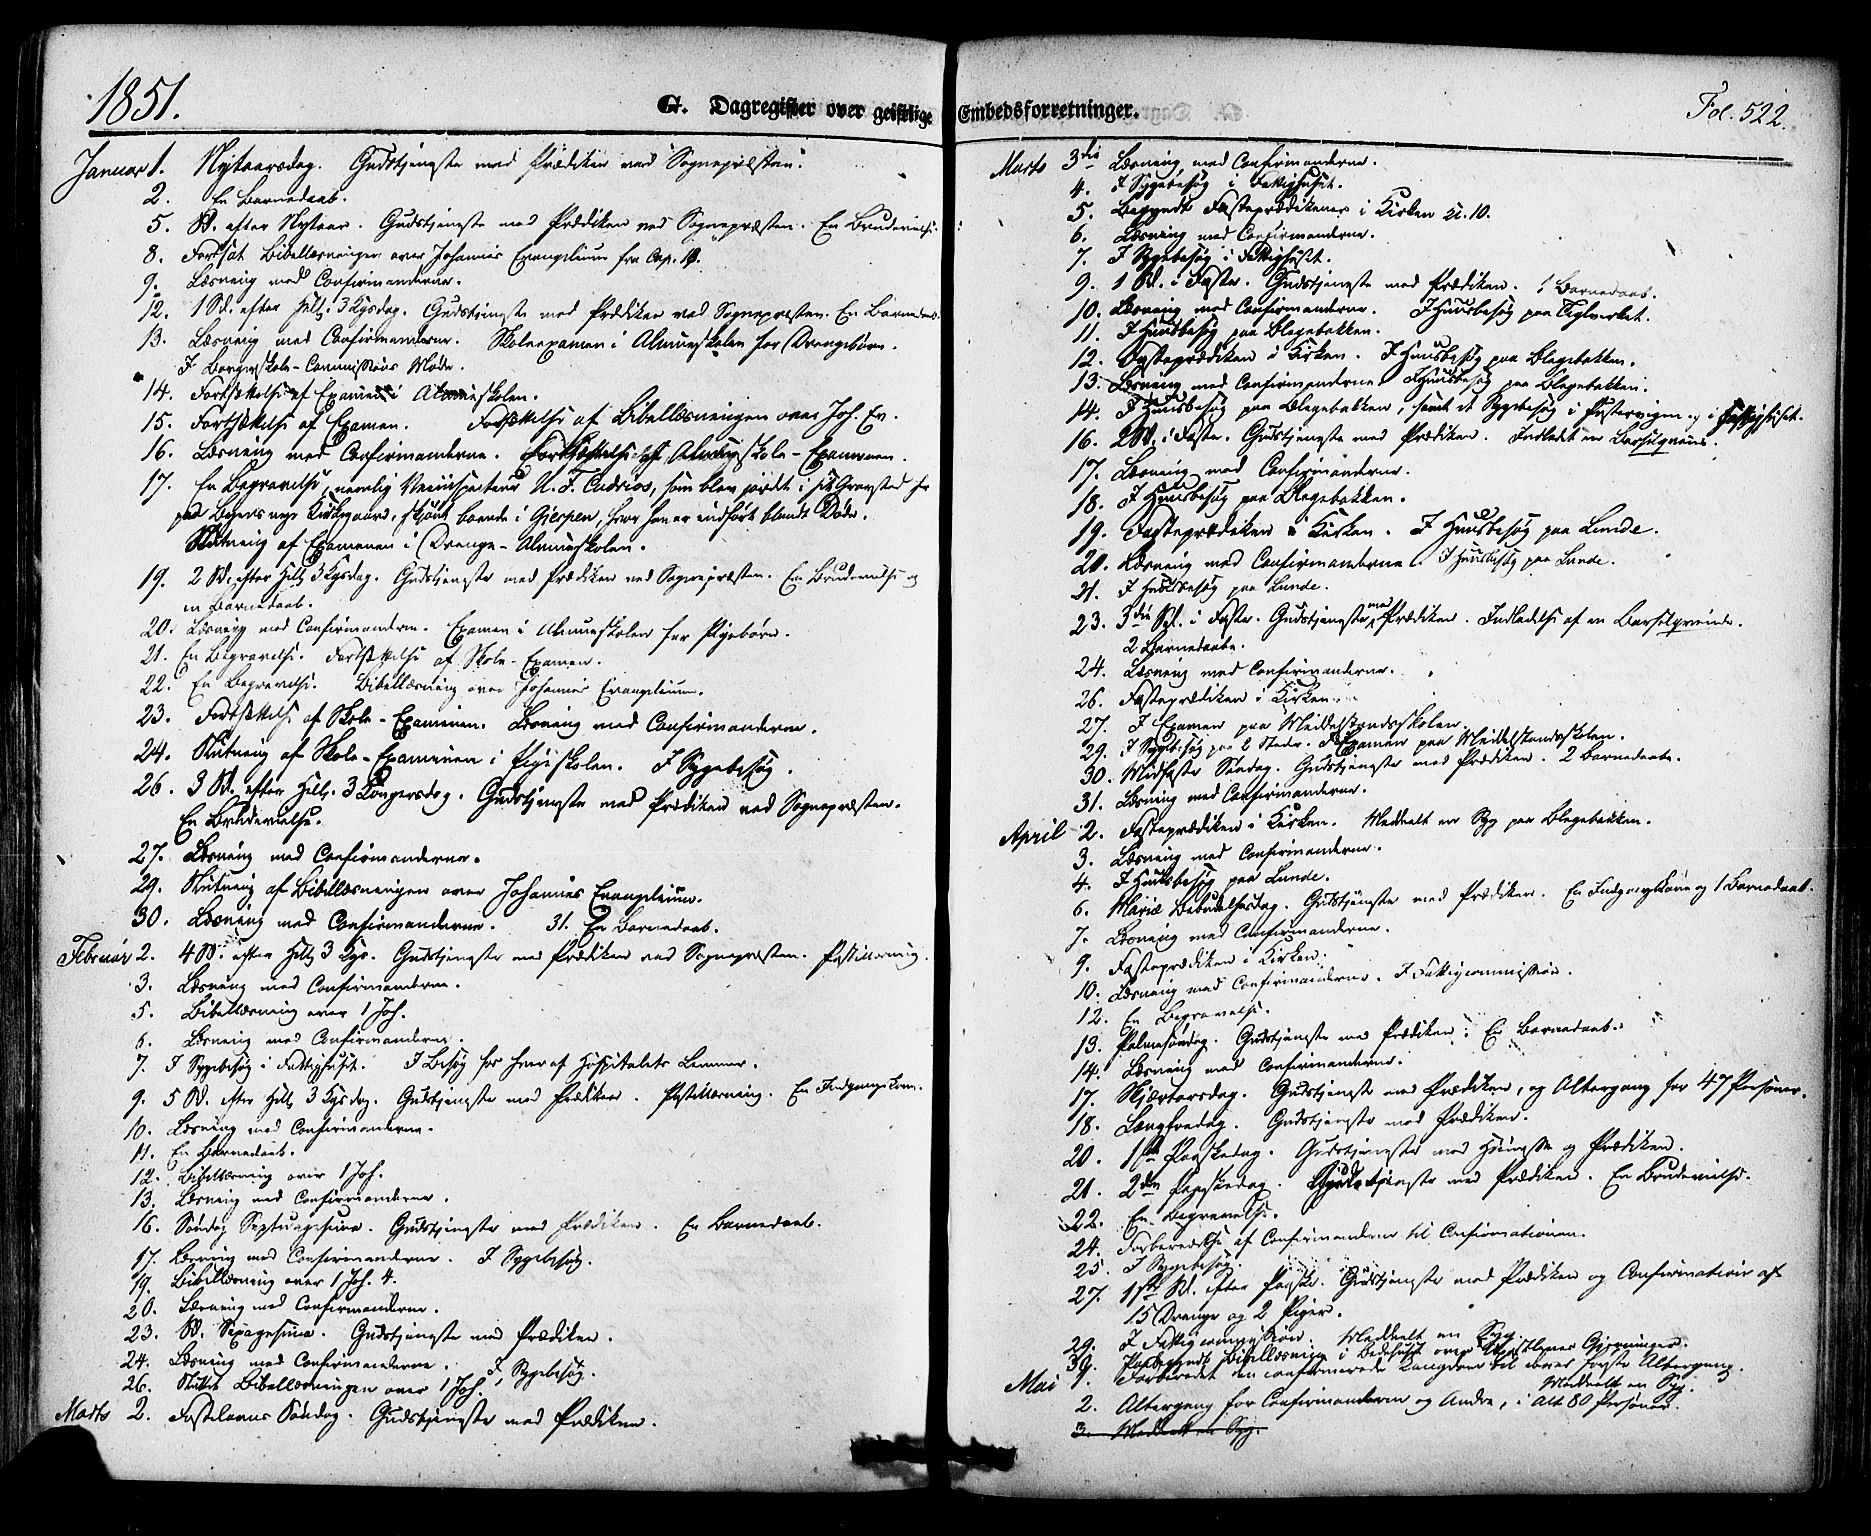 1851.
G. Dagregister over geistlige Embedsforretninger.
Fol. 522.
Januar 1. Nytaarsdag. Gudstjeneste med Prædiken ved Sognepræsten.
2. En Barnedaab.
5. S. efter Nytaar. Gudstjeneste med Prædiken ved Sognepræsten. En Brudevielse.
8. Fortsat Bibellæsningen over Johannis Evangelium fra Cap.
9. Læsning med Confirmanderne.
12. 1 S. efter Hell. 3 Kgsdag. Gudstjeneste med Prædiken ved Sognepræsten. En Barnedaab.
13. Læsning med Confirmanderne. Skoleexamen i Almueskolen for Drengebørn.
I Borgerskole-Commissions Møde.
14. Fortsættelse af Examen i Almueskolen.
15. Fortsættelse af Examen. Fortsættelse af Bibellæsningen over Joh. Ev.
16. Læsning med Confirmanderne. Fortsættelse af Almueskole-Examenen.
17. En Begravelse, nemlig Veiinspecteur N. F. som blev jordet i sit Gravsted her
paa Byens nye Kirkegaard, skjønt boende i Gjerpen, hvor han er indført blandt Døde.
Slutning af Examenen i Drenge-Almueskolen.
19. 2 S. efter Hell. 3 Kgsdag. Gudstjeneste med Prædiken ved Sognepræsten. En Brudevielse og
en Barnedaab.
20. Læsning med Confirmanderne. Examen i Almueskolen for Pigebørn.
21. En Begravelse. Fortsættelse af Skole-Examen.
22. En Begravelse. Bibellæsning over Johannis Evangelium.
23. Fortsættelse af Skole-Examenen. Læsning med Confirmanderne.
24. Slutning af Skole-Examenen i Pigeskolen. I Sygebesøg.
26. 3 S. efter Hell. 3 Kongersdag. Gudstjeneste med Prædiken ved Sognepræsten.
En Brudevielse.
27. Læsning med Confirmanderne.
29. Slutning af Bibellæsningen over Johannis Evangelium.
30. Læsning med Confirmanderne. 31. En Barnedaab.
Februar 2. 4 S. efter Hell. 3 Kgs. Gudstjeneste med Prædiken ved Sognepræsten. Postillæsning.
3. Læsning med Confirmanderne.
5. Bibellæsning over 1 Joh.
6. Læsning med Confirmanderne.
7. I Sygebesøg i Fattighuset. I Besøg hos hver af Hospitalets Lemmer.
9. 5 S. efter Hell. 3 Kgsdag. Gudstjeneste med Prædiken. Postillæsning. En Indgangskone.
10. Læsning med Confirmanderne.
11. En Barnedaab.
12. Bibellæsning over 1 Joh.
13. Læsning med Confirmanderne.
16. Søndag Septuagesima. Gudstjeneste med Prædiken. En Barnedaab.
17. Læsning med Confirmanderne. I Sygebesøg.
19. Bibellæsning over 1 Joh. 4.
20. Læsning med Confirmanderne.
23. S. Sexagesima. Gudstjeneste med Prædiken.
24. Læsning med Confirmanderne. I Sygebesøg.
26. Sluttet Bibellæsningen over 1 Joh.
Marts 2. Fastelavns Søndag. Gudstjeneste med Prædiken.
Marts 3die Læsning med Confirmanderne.
4. I Sygebesøg i Fattighuset.
5. Begyndt Fasteprædikener i Kirken kl. 10.
6. Læsning med Confirmanderne.
7. I Sygebesøg i Fattighuset.
9. 1 S. i Faste. Gudstjeneste med Prædiken. 1 Barnedaab.
10. Læsning med Confirmanderne. I Huusbesøg paa Teglverket.
11. I Huusbesøg paa Blegebakken.
12. Fasteprædiken i Kirken. I Huusbesøg paa Blegebakken.
13. Læsning med Confirmanderne. I Huusbesøg paa Blegebakken.
14. I Huusbesøg paa Blegebakken, samt et Sygebesøg i og i Fattighuset.
16. 2 S. i Faste. Gudstjeneste med Prædiken. Indledt en Barselqvinde.
17. Læsning med Confirmanderne.
18. I Huusbesøg paa Blegebakken.
19. Fasteprædiken i Kirken. I Huusbesøg paa Lunde.
20. Læsning med Confirmanderne. I Huusbesøg paa Lunde.
21. I Huusbesøg paa Lunde.
23. 3die S. i Faste. Gudstjeneste med Prædiken. Indledelse af en Barselqvinde.
2 Barnedaabe.
24. Læsning med Confirmanderne.
26. Fasteprædiken i Kirken.
27. I Examen paa Middelstandsskolen.
29. I Sygebesøg paa 2 Steder. I Examen paa Middelstandsskolen.
30. Midfaste Søndag. Gudstjeneste med Prædiken. 2 Barnedaabe.
31. Læsning med Confirmanderne.
April 2. Fasteprædiken i Kirken. Meddeelt en Syg paa Blegebakken.
3. Læsning med Confirmanderne.
4. I Huusbesøg paa Lunde.
6. Mariæ Bebudelsesdag. Gudstjeneste med Prædiken. En Indgangskone og 1 Barnedaab.
7. Læsning med Confirmanderne.
9. Fasteprædiken i Kirken.
10. Læsning med Confirmanderne. I Fattigcommission.
12. En Begravelse.
13. Palmesøndag. Gudstjeneste med Prædiken. En Barnedaab.
14. Læsning med Confirmanderne.
17. Skjærtorsdag. Gudstjeneste med Prædiken, og Altergang for 47 Personer.
18. Langfredag. Gudstjeneste med Prædiken.
20. 1ste Paaskedag. Gudstjeneste med Høimesse og Prædiken.
21. 2den Paaskedag. Gudstjeneste med Prædiken. En Brudevielse.
22. En Begravelse.
24. Forberedelse af Confirmanderne til Confirmationen.
25. I Sygebesøg.
27. 1ste S. efter Paaske. Gudstjeneste med Prædiken og Confirmation af
15 Drenge og 2 Piger.
29. I Fattigcommission. Meddeelt en Syg.
30. Paabegyndt Bibellæsning i Bedehuset over Apostlenes Gjerninger.
Mai 1. Forberedet den confirmerede Ungdom til deres første Altergang.
Meddeelt en Syg.
2. Altergang for Confirmanderne og Andre, i Alt 80 Personer.
3. Meddeelt en Syg.